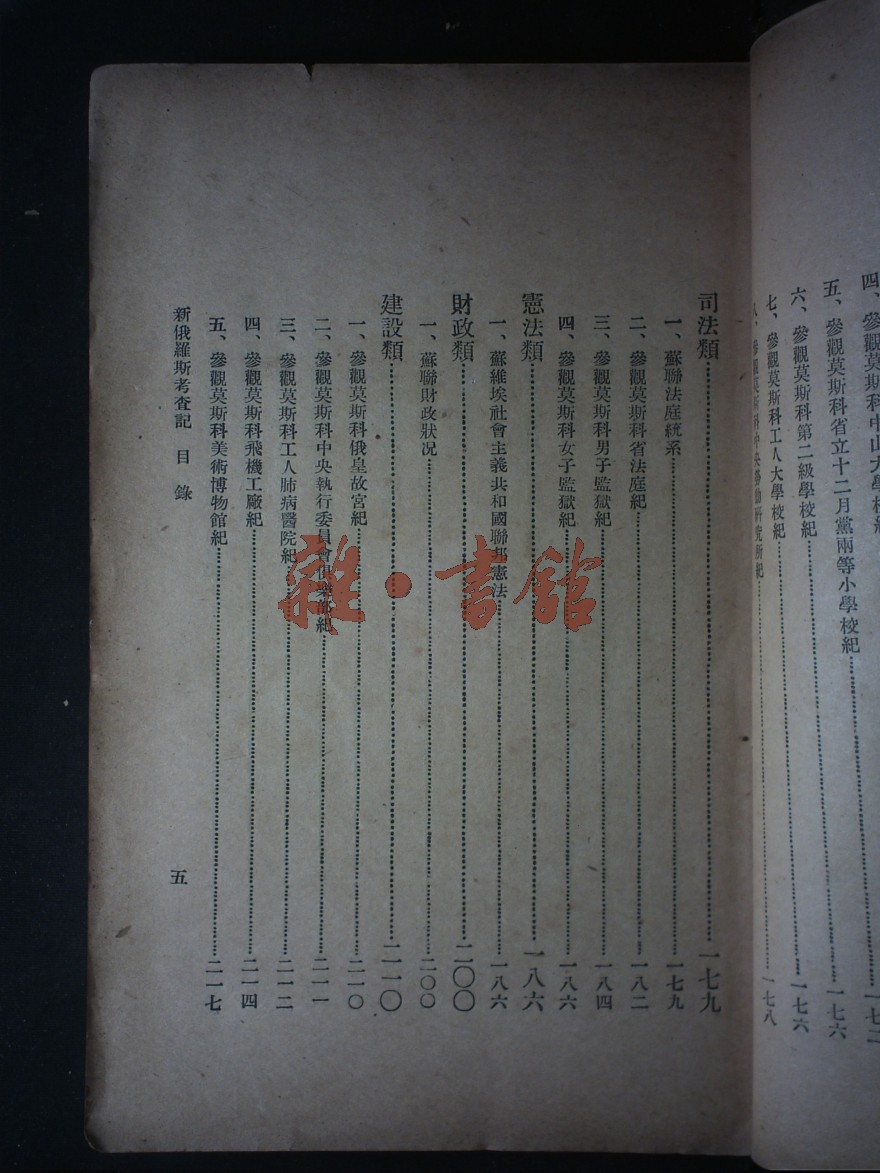 四、參觀莫斯科中山大學校紀…一七二
五、參觀莫斯科省立十二月黨兩等小學校紀…一七六
六、參觀莫斯科第二級學校紀…一七六
七、參觀莫斯科工人大學校紀…一七八
八、參觀莫斯科中央勞動研究所紀
司法類…一七九
一、蘇聯法庭統系…一七九
二、參觀莫斯科省法庭紀…一八二
三、參觀莫斯科男子監獄紀…一八四
四、參觀莫斯科女子監獄紀…一八六
憲法類…一八六
一、蘇維埃社會主義共和國聯邦憲法…一八六
財政類…二〇〇
一、蘇聯財政狀况…二〇〇
建設類…二一〇
一、參觀莫斯科俄皇故宮紀…二一〇
二、參觀莫斯科中央執行委員會俱樂部紀…二一一
三、參觀莫斯科工人肺病醫院紀…二一二
四、參觀莫斯科飛機工廠紀…二一四
五、參觀莫斯科美術博物館紀…二一七
新俄羅斯考查記 目錄 五
雜·書館